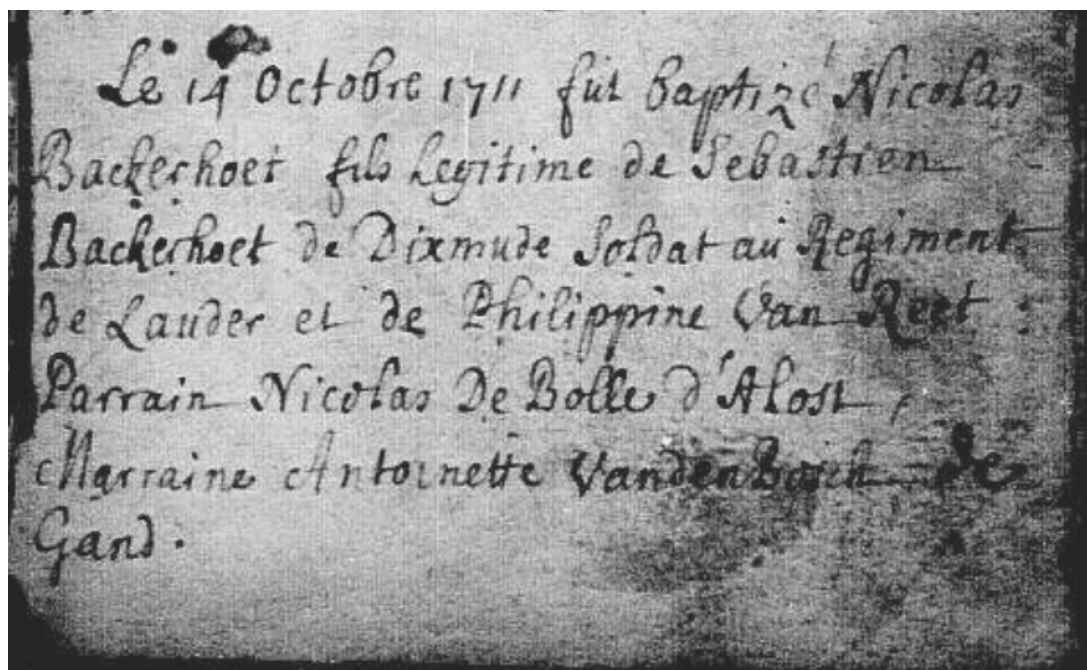 Le 14 Octobre 1711 fut baptizé Nicolas
Backerhoet fils Legitime de Sebastien
Backerhoet de Dixmude Soldat au Regiment
de Lauder et de Philippine Van Reet
Parrain Nicolas De Bolle d'Alost,
Marraine Antoinette VandenBosch de
Gand.